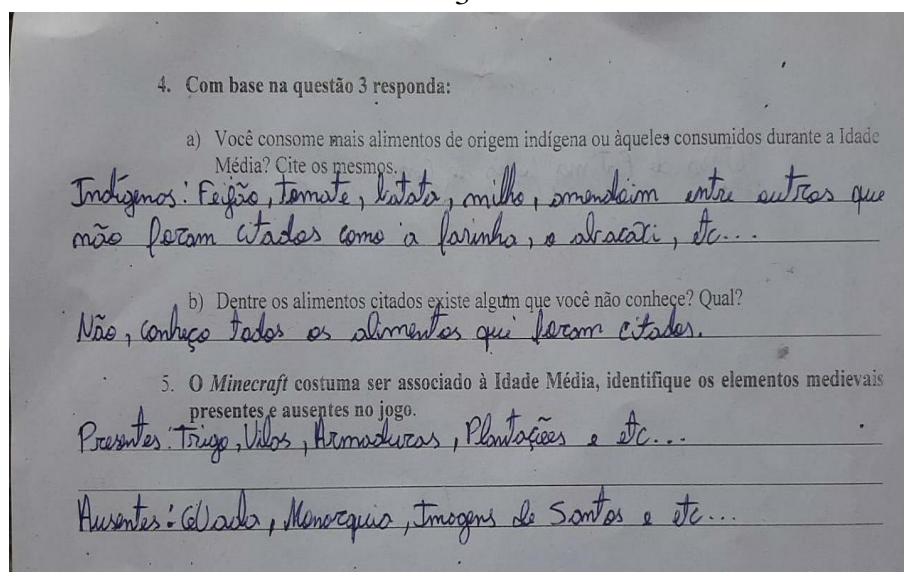 4. Com base na questão 3 responda:
a) Você consome mais alimentos de origem indígena ou àqueles consumidos durante a Idade
Média? Cite os mesmos.
Indígenas: Feijão, tomate, batata, milho, amendoim entre outros que
não foram citados como a farinha, o abacaxi, etc...
b) Dentre os alimentos citados existe algum que você não conheçe? Qual?
Não, conheço todos os alimentos que foram citados.
5. O Minecraft costuma ser associado à Idade Média, identifique os elementos medievais
presentes e ausentes no jogo.
Presentes: Trigo, Vilas, Armaduras, Plantações e etc...
Ausentes: Cevada, Monarquia, Imagens de Santos e etc...